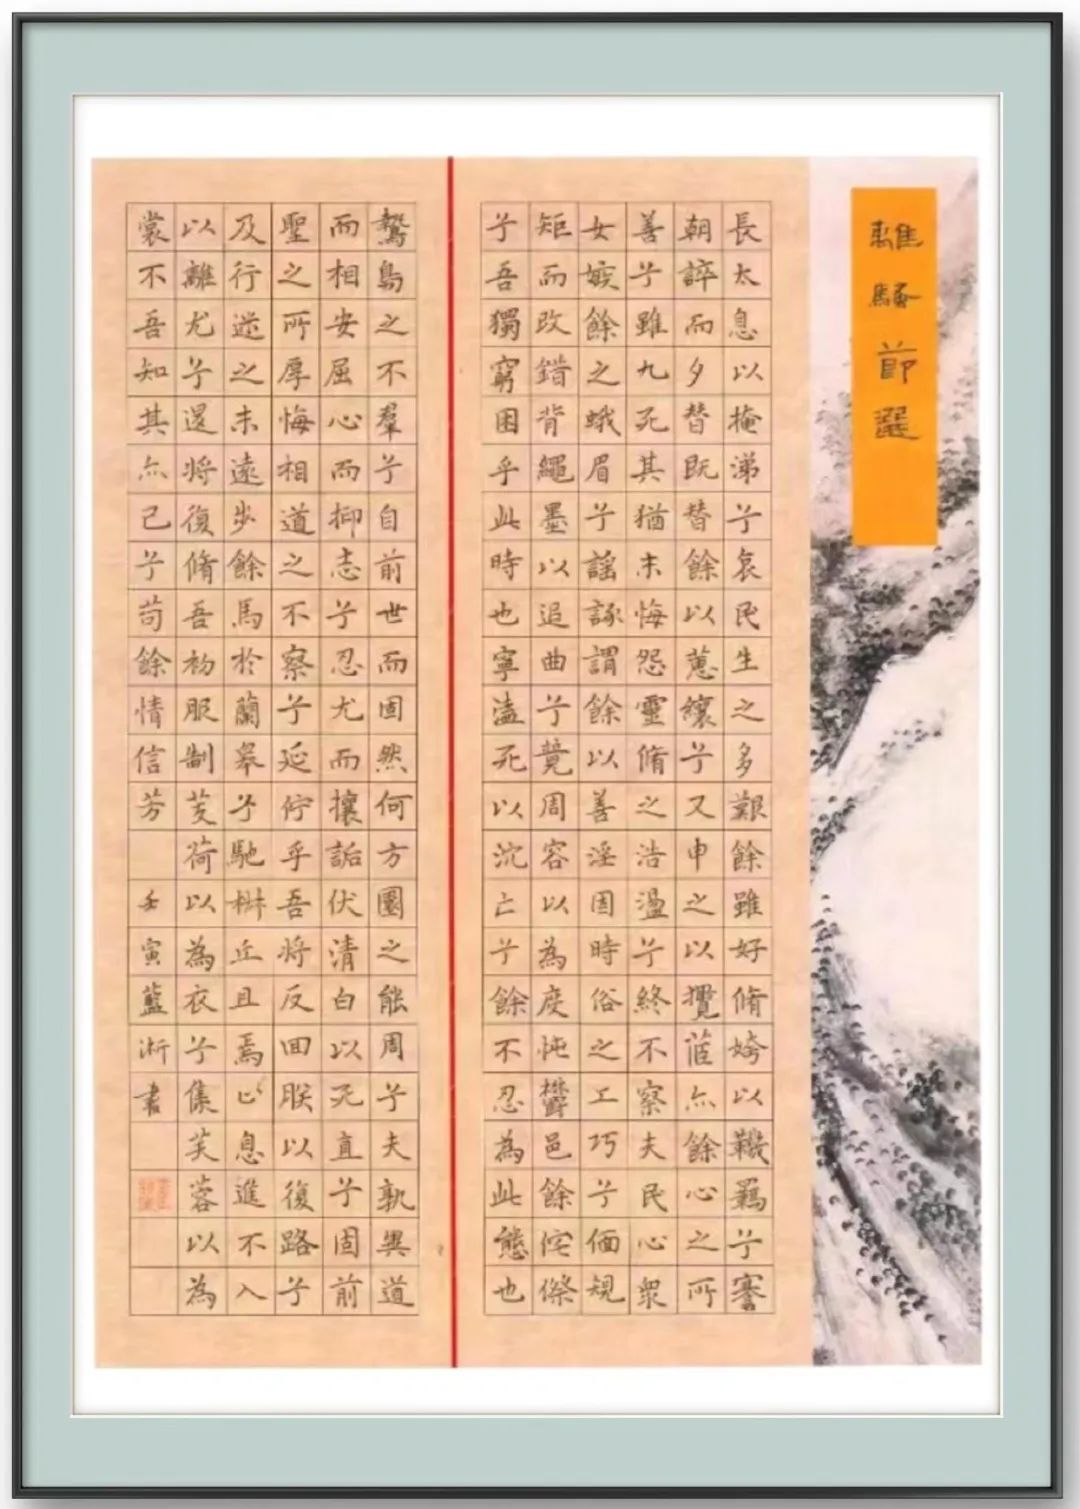 離騷節選
長太息以掩涕兮哀民生之多艱餘雖好脩姱以鞿羈兮謇
朝誶而夕替既替餘以蕙纕兮又申之以攬茝亦餘心之所
善兮雖九死其猶未悔怨靈脩之浩盪兮終不察夫民心衆
女嫉餘之蛾眉兮謠諑謂餘以善淫固時俗之工巧兮偭規
矩而改錯背繩墨以追曲兮競周容以為度忳鬱邑餘侘傺
兮吾獨窮困乎此時也寧溘死以沈亡兮餘不忍為此態也
鷙鳥之不羣兮自前世而固然何方圜之能周兮夫孰異道
而相安屈心而抑志兮忍尤而攘詬伏清白以死直兮固前
聖之所厚悔相道之不察兮延佇乎吾將反回朕以復路兮
及行迷之未遠步餘馬於蘭皋兮馳椒丘且焉止息進不入
以離尤兮退將復脩吾初服制芰荷以為衣兮集芙蓉以為
裳不吾知其亦已兮苟餘情信芳 壬寅藍淅書